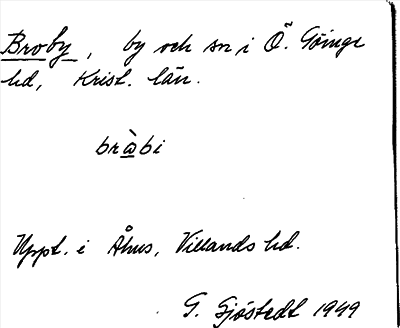 Broby, by och sn i Ö. Göinge
hd, Krist. län.
brὰ̱bi
Uppt. i Åhus, Villands hd.
G. Sjöstedt 1949